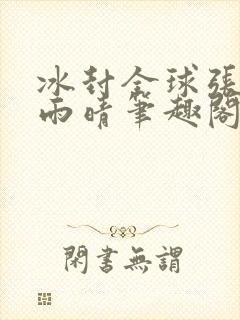 冰封全球張
雨晴筆趣閣
閑書無謂